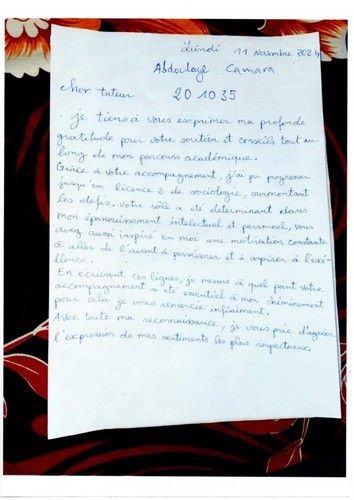 Lundi 11 Novembre 2024
Abdoulaye Camara
cher tuteur 201035
. je tiens à vous exprimer ma profonde
gratitude pour votre soutien et conseils tout au
long de mon parcours académique.
Grâce à votre accompagnement, j'ai pu progresser
jusqu'en licence 2 de sociologie, surmontant
les défis. Votre rôle a été determinant dans
mon épanouissement intellectuel et personnel, vous
avez aussi inspiré en moi une motivation constante
à aller de l'avant à persévérer et à aspirer à l'exé-
llence.
En écrivant ces lignes, je mesure à quel point votre
accompagnement a été essentiel à mon cheminement
pour cela je vous remercie infiniment.
Avec toute ma reconnaissance, je vous prie d'agréer
l'expression de mes sentiments les plus respectueux.